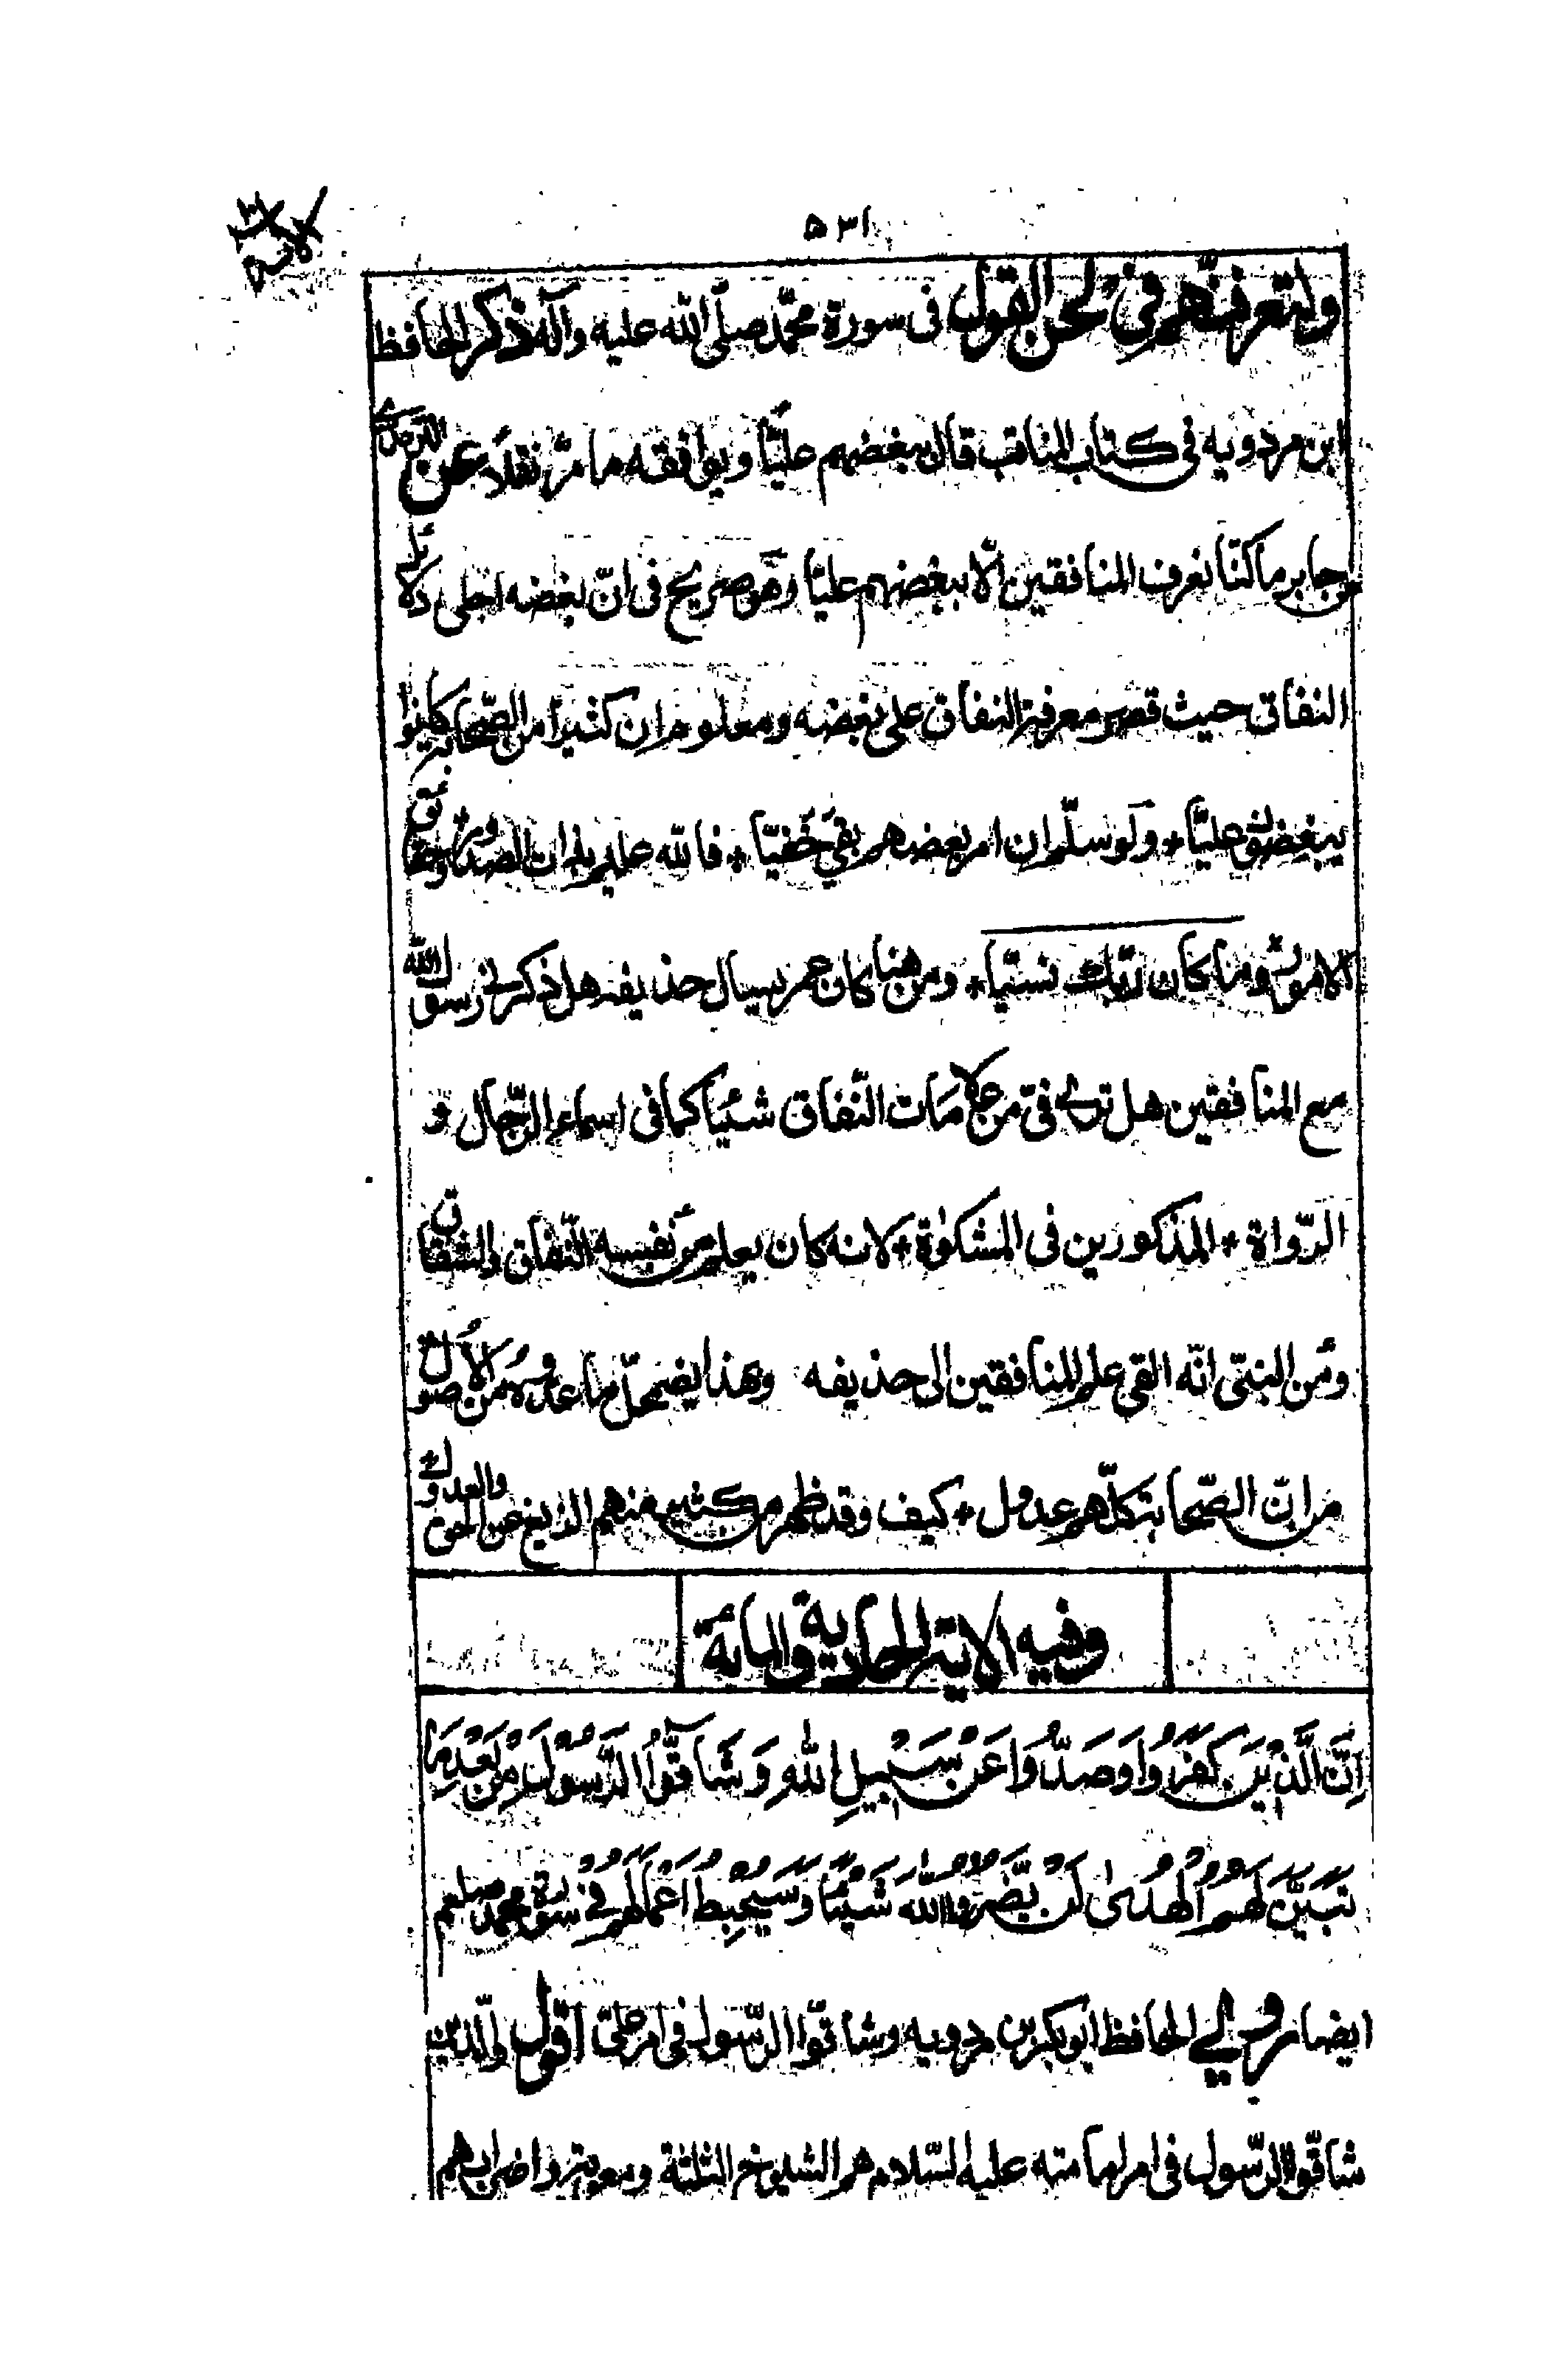 ٥٣١
ولتعرفنّهم في لحن القول في سورة محمّد صلّى الله عليه وآله ذكر الحافظ
ابن مردويه في كتاب المناقب قال ببغضهم عليّا ويوافقه ما مرّ نقلاً عن الترمذي
عن جابر ما كنّا نعرف المنافقين الّا ببغضهم عليّا وهو صريح في انّ بغضه اجلى دلائل
النفاق حيث قصر معرفة النفاق على بغضه ومعلوم ان كثيرا من الصّحابة كانوا
يبغضون عليّا * ولو سلّم ان امر بعضهم بقي خفيّا * فالله عليم بذات الصدور وخفايا
الامور وما كان ربّك نسيّا * ومن هنا كان عمر يسال حذيفه هل ذكرني رسول الله
مع المنافقين هل ترى فيّ من علامات النّفاق شيئا كما في اسماء الرّجال و
الرّواة * المذكورين في المشكوة * لانه كان يعلم من نفسه النّفاق والشقاق
ومن النبيّ انّه القى علم المنافقين الى حذيفه وهذا يضمحلّ ما عدّوه من الاصول
من انّ الصّحابة كلّهم عدول * كيف وقد ظهر من كثير منهم الزيغ عن الحق والعدول
وفيه الاية الحادية والمائة
اِنَّ الَّذِيْنَ كَفَرُوْا وَصَدُّوْا عَنْ سَبِيْلِ اللهِ وَشَآقُّوا الرَّسُوْلَ مِنْ بَعْدِ مَا
تَبَيَّنَ لَهُمُ الْهُدٰى لَنْ يَّضُرُّوا اللهَ شَيْئًا وَسَيُحْبِطُ اَعْمَالَهُمْ في سورة محمد صلعم
ايضا روى الحافظ ابو بكر بن مردويه وشاقّوا الرّسول في امر عليّ اقول والذين
شاقّوا الرّسول في امر امامته عليه السّلام هم الشيوخ الثلثة ومعوية واضرابهم